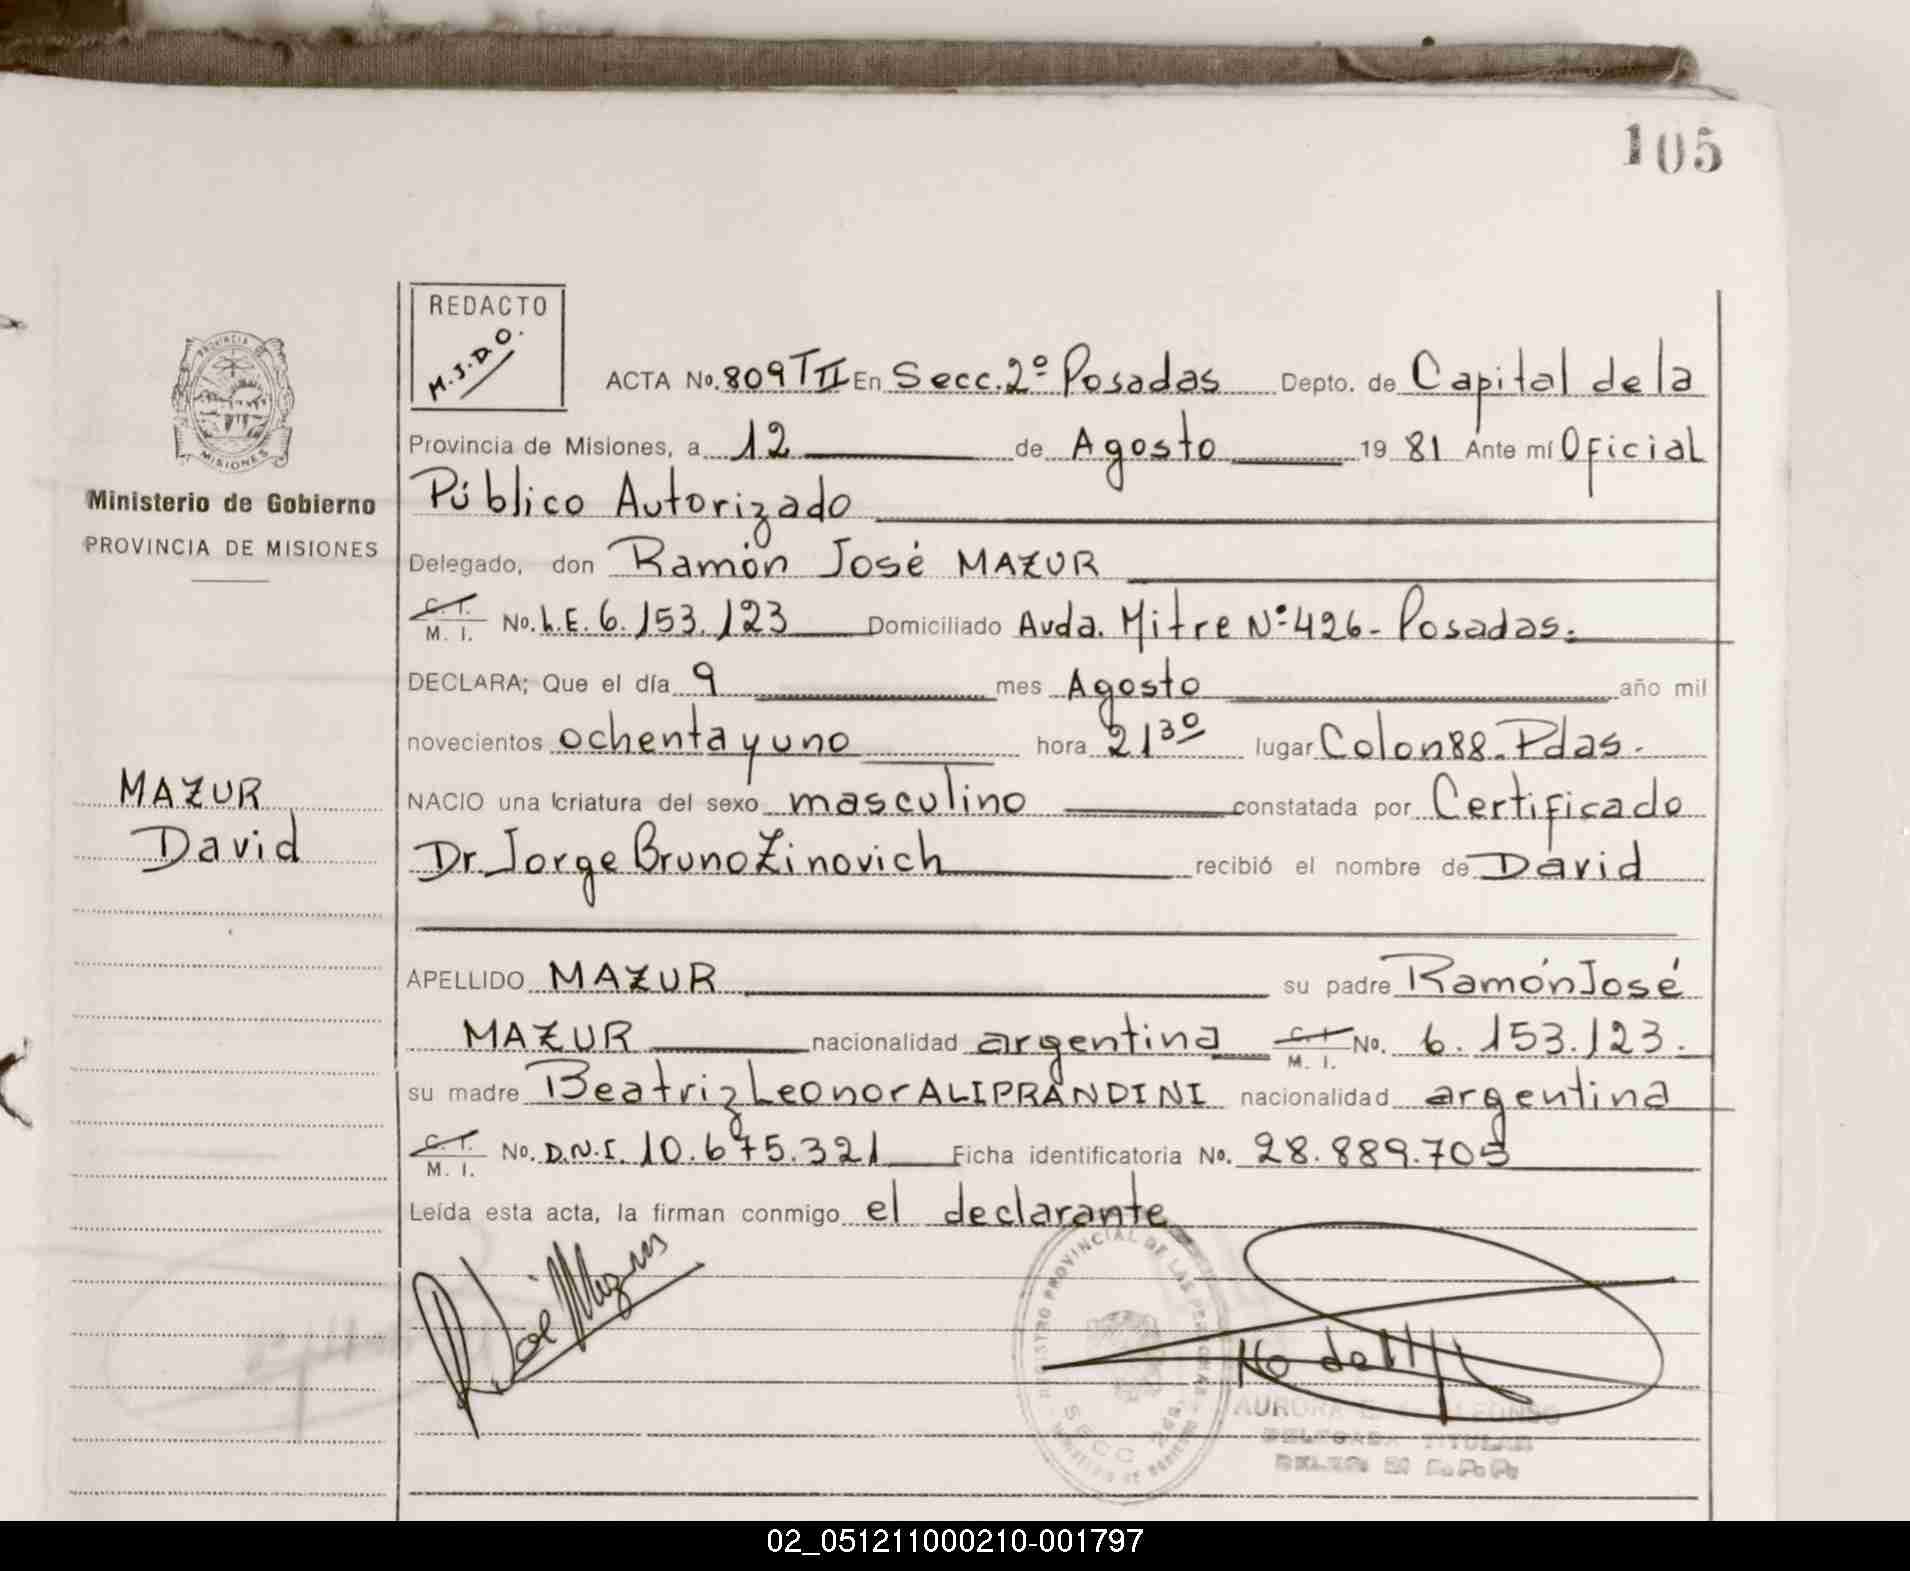 105
REDACTO
M.J.D.O.
ACTA No. 809 T II En Secc. 2º Posadas Depto. de Capital de la
Provincia de Misiones, a 12 de Agosto 19 81 Ante mí Oficial
Público Autorizado
Delegado, don Ramón José MAZUR
C. I. M. I. No. L.E. 6.153.123 Domiciliado Avda. Mitre Nº 426- Posadas.
DECLARA; Que el día 9 mes Agosto año mil
novecientos ochenta y uno hora 21 30 lugar Colon 88- Pdas.
NACIO una criatura del sexo masculino constatada por Certificado
Dr. Jorge Bruno Zinovich recibió el nombre de David
APELLIDO MAZUR su padre Ramón José
MAZUR nacionalidad argentina C. I. M. I. No. 6.153.123.
su madre Beatriz Leonor ALIPRANDINI nacionalidad argentina
C. I. M. I. No. D.N.I. 10.675.321 Ficha identificatoria No. 28.889.705
Leída esta acta, la firman conmigo el declarante
PROVINCIA DE
MISIONES
Ministerio de Gobierno
PROVINCIA DE MISIONES
MAZUR
David
REGISTRO PROVINCIAL DE LAS PERSONAS
SECC 2da.
MINISTERIO DE GOBIERNO
AURORA
DELEGADA TITULAR
02_051211000210-001797